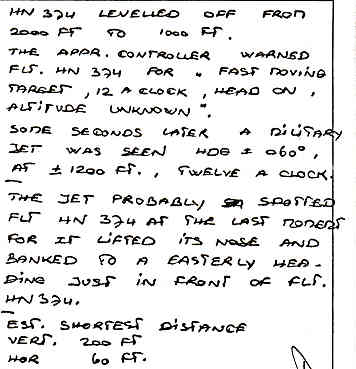 HN 374 LEVELLED OFF FROM
2000 FT TO 1000 FT.
THE APPR. CONTROLLER WARNED
FLT. HN 374 FOR " FAST MOVING
TARGET, 12 A CLOCK, HEAD ON,
ALTITUDE UNKNOWN".
SOME SECONDS LATER A MILITARY
JET WAS SEEN HDG ± 060°,
AT ± 1200 FT., TWELVE A CLOCK.
THE JET PROBABLY SPOTTED
FLT HN 374 AT THE LAST MOMENT
FOR IT LIFTED ITS NOSE AND
BANKED TO A EASTERLY HEA-
DING JUST IN FRONT OF FLT.
HN 374.
EST. SHORTEST DISTANCE
VERT. 200 FT
HOR 60 FT.